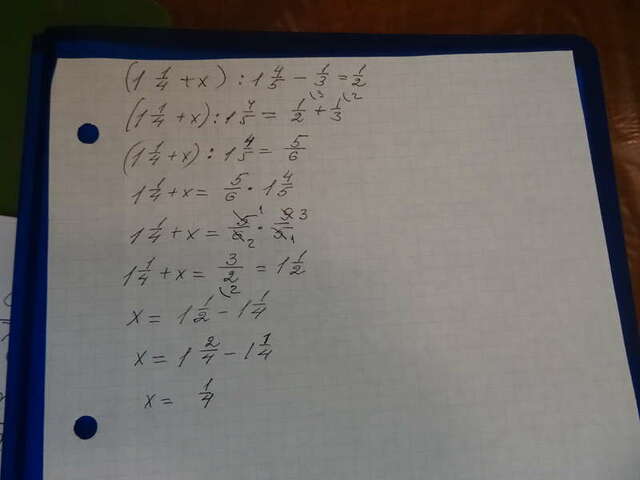 (1 1/4 + x) : 1 4/5 - 1/3 = 1/2
(1 1/4 + x) : 1 4/5 = 1/2 (3 + 1/3 (2
(1 1/4 + x) : 1 4/5 = 5/6
1 1/4 + x = 5/6 · 1 4/5
1 1/4 + x = 5 1/6 2 · 9 3/5 1
1 1/4 + x = 3/2 = 1 1/2
x = 1 1/2 (2 - 1 1/4
x = 1 2/4 - 1 1/4
x = 1/4